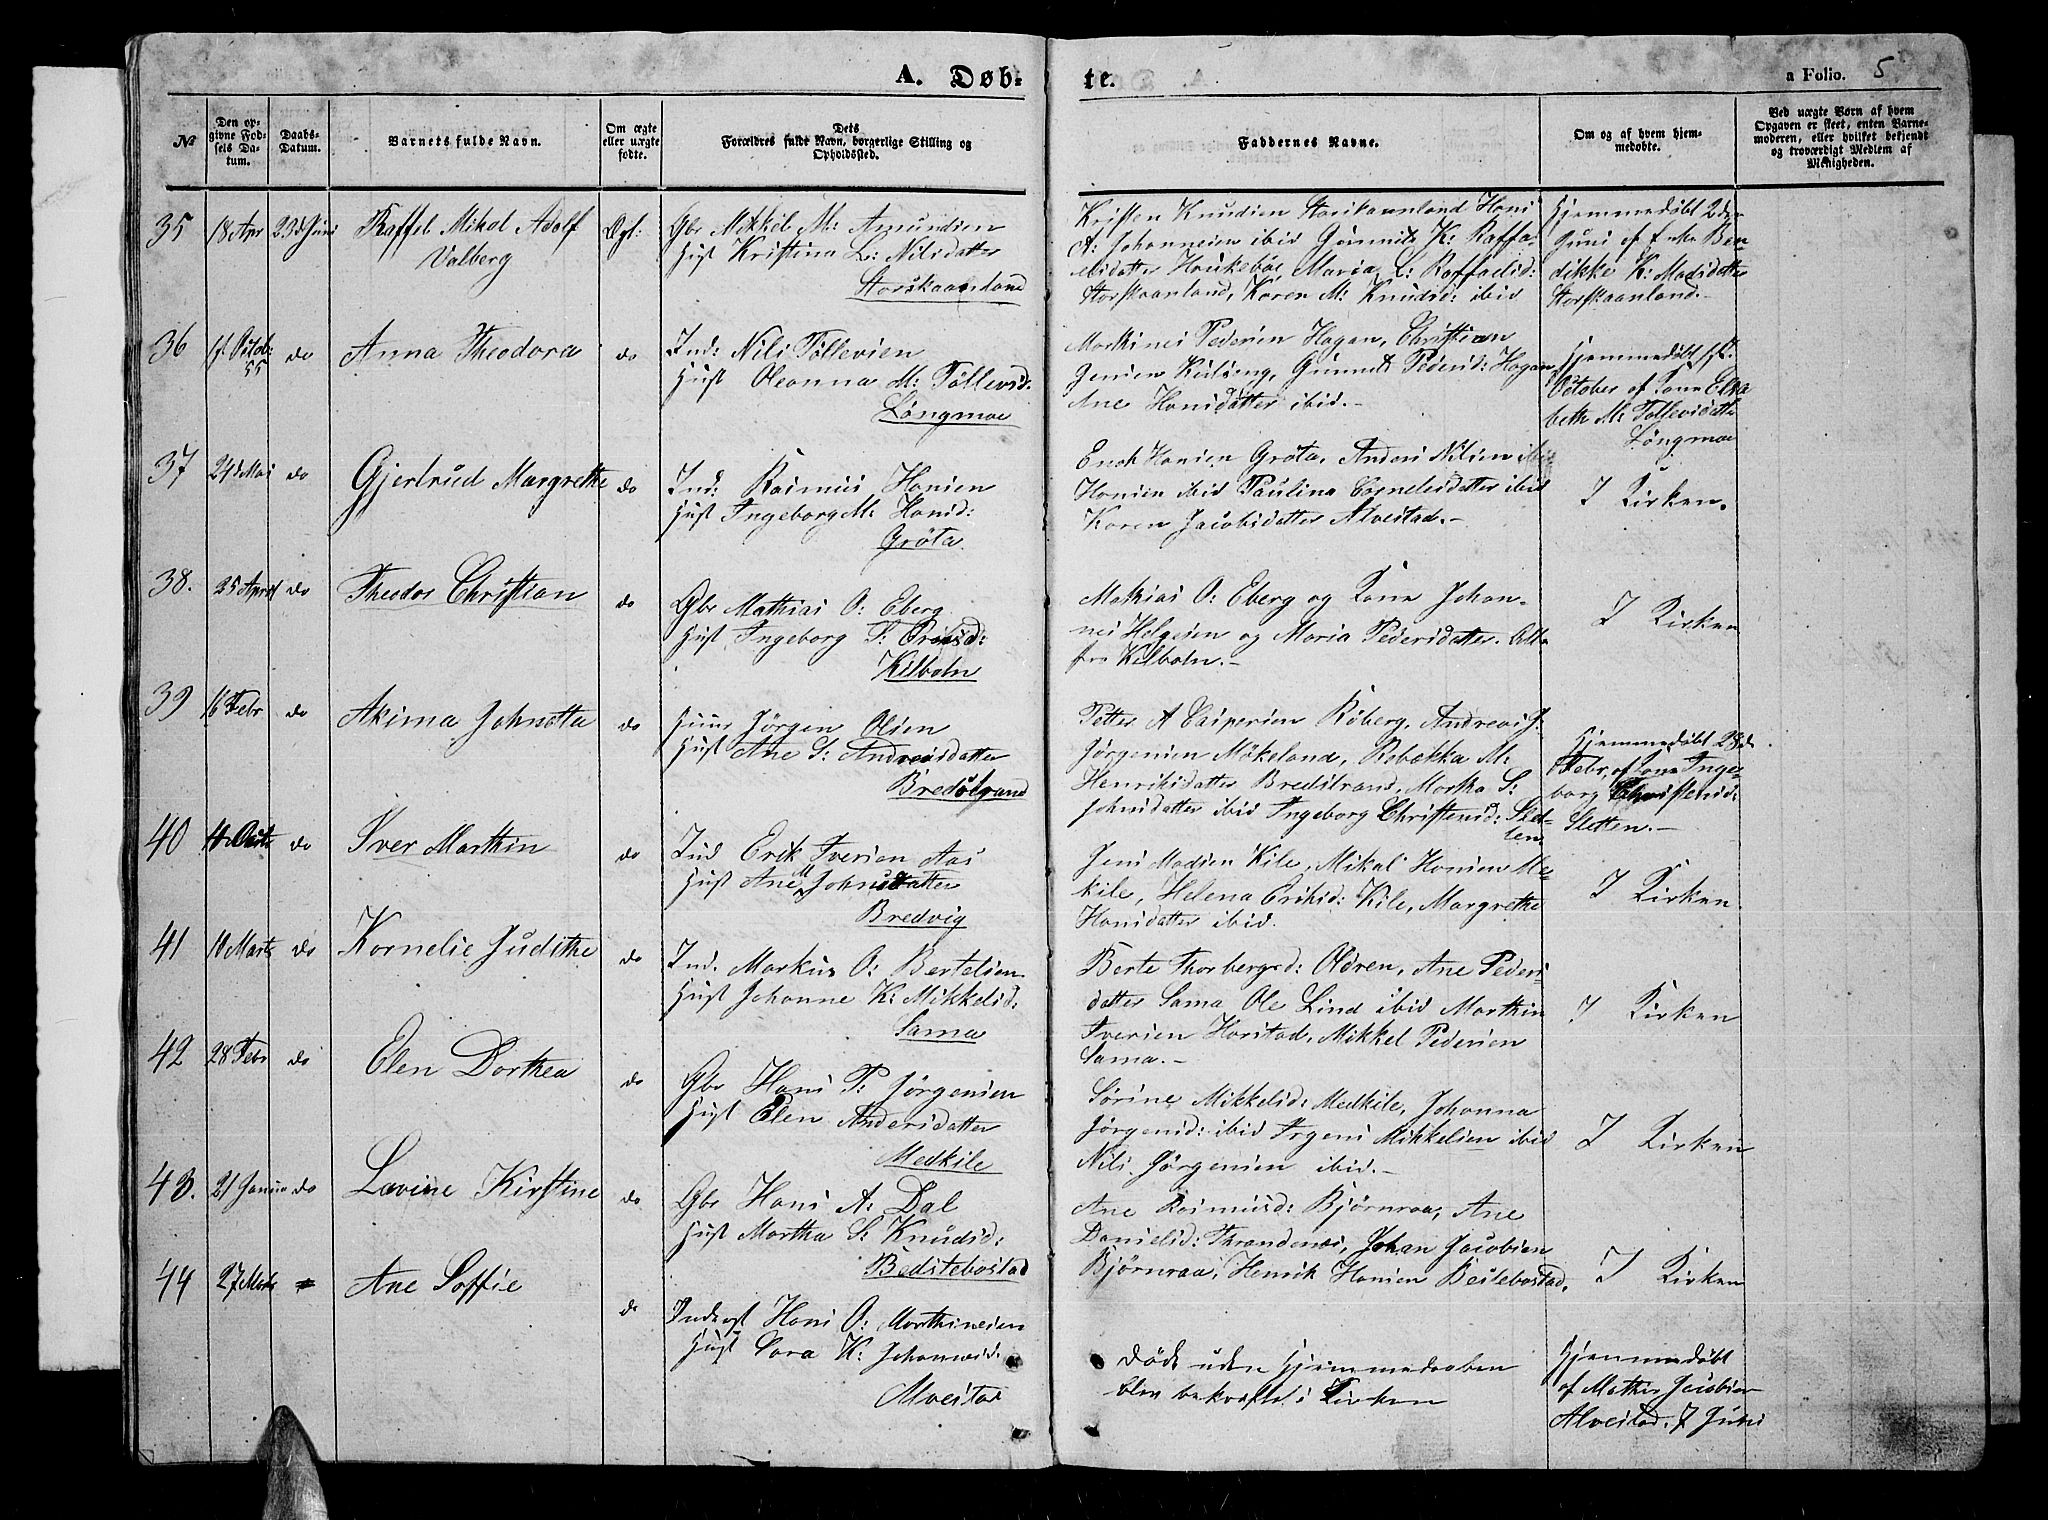 A. Døb-
te.
a Folio. 5
No
Den op-
givne Fød-
sels Da-
tum.
Daabs-
Datum.
Barnets fulde Navn.
Om ægte
eller uægte
fødte.
Dets
Forældres fulde Navn, borgerlige Stilling og
Opholdssted.
Faddernes Navne.
Om og af hvem hjem-
medøbte.
Ved uægte Børn af hvem
Opgaven er skeet, enten Barne-
moderen, eller hvilket bekjendt
og troværdigt Medlem af
Menigheden.
35 18 Apr 23d Juni Raffel Mikal Adolf
Valberg
Ægt:
Gbr Mikkel M: Amundsen
Hust Kristina L: Nilsdatter
Storskaanland
Kristen Knudsen Storskaanland Hans
A: Johannesen ibid Gunnild K: Raffa-
elsdatter Haukebøe Maria L: Raffaelsd:
Storskaanland, Karen M: Knudsd: ibid
Hjemmedøbt 2den
Juni af Enke Ben-
dikke K: Madsdatter
Storskaanland.-
36 1st Octob: 55 do Anna Theodora do
Ind: Nils Tollevsen
Hust Oleanna M: Tollevsd:
Langmoe
Marthines Pedersen Hagan, Christian
Jensen Gunnild Pedersd: Hagan
Ane Hansdatter ibid.-
Hjemmedøbt 1st
October af Kone Elisa
beth M: Tollevsdatter
Langmoe
37 24d Mai do Gjertrud Margrethe do
Ind: Rasmus Hansen
Hust Ingeborg M: Hansd:
Grøta.
Enok Hansen Grøta, Anders Nilsen ibid
Hansen ibid Paulina Cornelisdatter ibid
Karen Jacobsdatter Alvestad.-
I Kirken.
38. 25 April do Theodor Christian do
Gbr Mathias O: Eberg
Hust Ingeborg S:
Kilbotn
Mathias O: Eberg og Kone Johan-
nes Helgesen og Maria Pedersdatter. Alle
fra Kilbotn.-
I Kirken
39 16 Febr do Akima Johnetta do
Huus Jørgen Olsen
Hust Ane S: Andreasdatter
Bredstrand
Petter A Caspersen Røberg, Andreas J.
Jørgensen Møkeland, Rebekka M:
Henriksdatter Bredstrand, Martha S:
Johnsdatter ibid Ingeborg Christensd: Slet-
ten
Hjemmedøbt 28d
Febr. af Kone Inge-
borg Christensd:
Sletten.-
40 do Iver Marthin do
Ind Erik Iversen Aas
Hust Ane M Johnsdatter
Bredvig
Jens Madsen Kile, Mikal Hansen Me-
kile, Helena Eriksd: Kile, Margrethe
Hansdatter ibid.
I Kirken.
41 10 Marts do Kornelie Judithe do
Ind. Markus O: Bertelsen
Hust Johanne K: Mikkelsd:
Sama
Berte Thorbergsd: Oldren, Ane Peders
datter Sama Ole Lind ibid Marthin
Iversen Harstad, Mikkel Pedersen
Sama.-
I Kirken
42 28 Febr do Elen Dorthea do
Gbr Hans P: Jørgensen
Hust Elen Andersdatter
Medkile
Sørine Mikkelsd: Medkile, Johanna
Jørgensd: ibid Jrgens Mikkelsen ibid
Nils Jørgensen ibid.-
I Kirken
43. 21 Janua do Lavine Kirstine do
Gbr Hans A: Dal
Hust Martha S: Knudsd:
Beditebostad
Ane Rasmusd: Bjørnraa, Ane
Danielsd: Throndenes, Johan Jacobsen
Bjørnraa, Henrik Hansen Beitebostad.
I Kirken
44 27 Marts Ane Soffie do
Inderst Hans O: Marthinesen
Hust Sara K: Johannesd:
Alvestad
Døde uden Hjemmedaaben
blev bekræftet i Kirken
Hjemmedøbt
af Mathis Jacobsen
Alvestad, 7 Juni